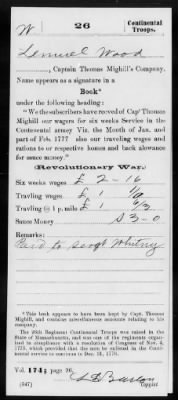 W | 26 | Continental Troops.
Lemuel Wood
, Captain Thomas Mighill's Company.
Name appears as a signature in a
Book*
under the following heading:
"We the subscribers have receved of Cap' Thomas
Mighill our wagers for six weeks Service in the
Contenental army Viz. the Month of Jan. and
part of Feb. 1777 also our traveling wages and
rations to or respective homes and back alowance
for sauce money."
(Revolutionary War.)
Six weeks wages £ 2-16
Travling wages £ 1
Traveling @ 1 p. mile £ 1
Sauce Money 3-0
Remarks:
Paid to Sergt Whitney
*This book appears to have been kept by Capt. Thomas
Mighill, and contains miscellaneous accounts relating to his
company.
The 26th Regiment Continental Troops was raised in the
State of Massachusetts, and was one of the regiments organ-
ized in compliance with a resolution of Congress of Nov. 4,
1775, which provided that the men be enlisted in the Conti-
nental service to contin to Dec. 31, 1776.
Vol. 174; page 26
(547)
Copyist.